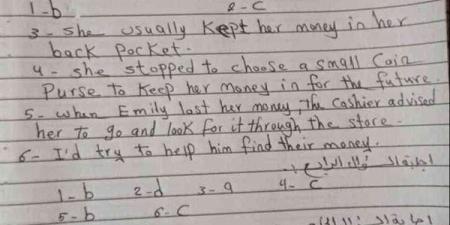 1-b 2-C
3- She usually kept her money in her
back pocket.
4- she stopped to choose a small Coin
Purse to keep her money in for the future.
5- when Emily lost her money, the cashier advised
her to go and look for it through the store.
6- I'd try to help him find their money.
1-b 2-d 3-a 4- C
5-b 6-C